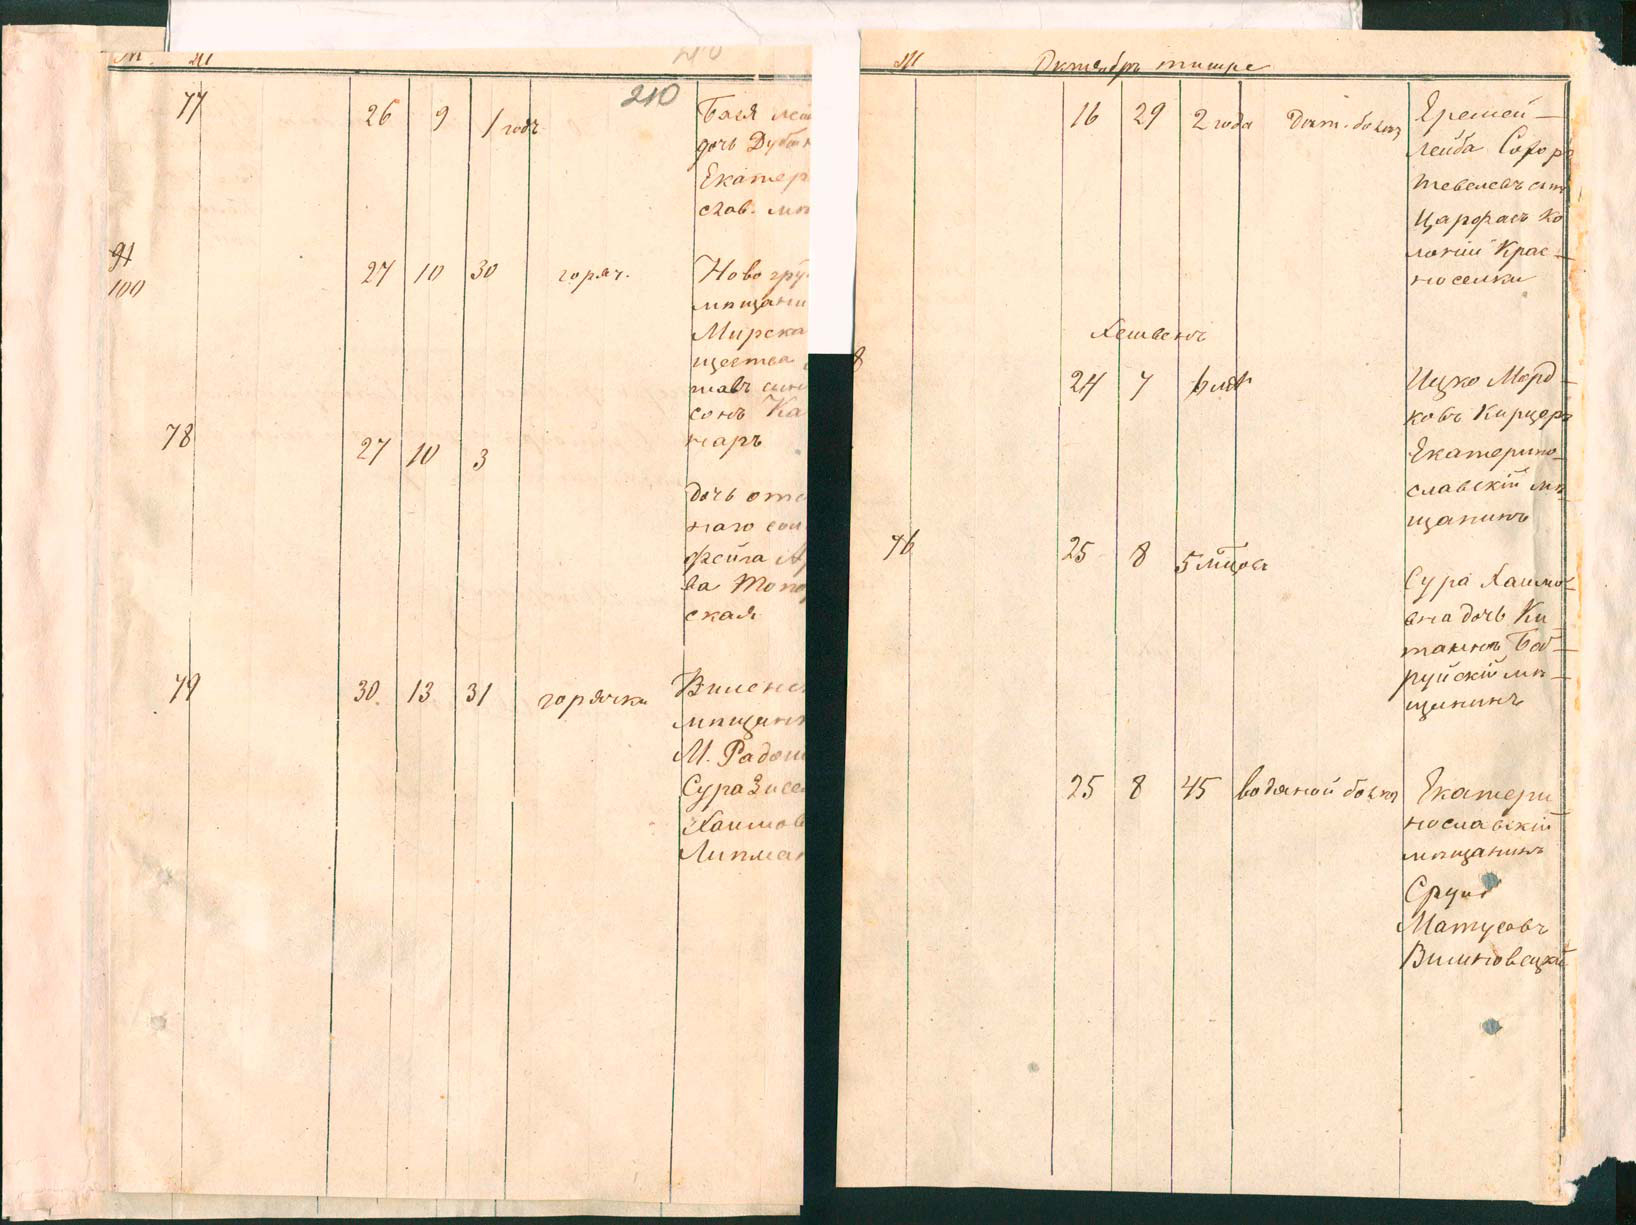 М. Ж
210
77 26 9 1 годъ Бася Лей
дочь Дубин
Екатер
слав. мѣ
91
100 27 10 30 горяч. Новогру
мѣщани
Мирска
щества
сонъ Ка
наръ
78 27 10 3
дочь отс
наго сол
Фейга
ва Топо
ская
79 30. 13 31 горячки Виленс
мѣщанк
М. Радош
Сура Зисе
Хаимов
Липман
Ж Октябрь тишре
16 29 2 года Дѣт. болѣз Еремей-
Лейба
Тевелевъ сынъ
Царфасъ Ко
лонiи Крас-
носелки
Хешвенъ
8 24 7 6 лѣт Ицко Морд-
ковъ Кирцеръ
Екатерино-
славскiй мѣ
щанинъ
76 25 8 5 мѣцовъ
Сура Хаимо-
вна дочь Ки
таинъ Боб-
руйскiй мѣ-
щанинъ
25 8 45 водяной болѣз Екатери
нославскiй
мѣщанинъ
Сруль
Матусовъ